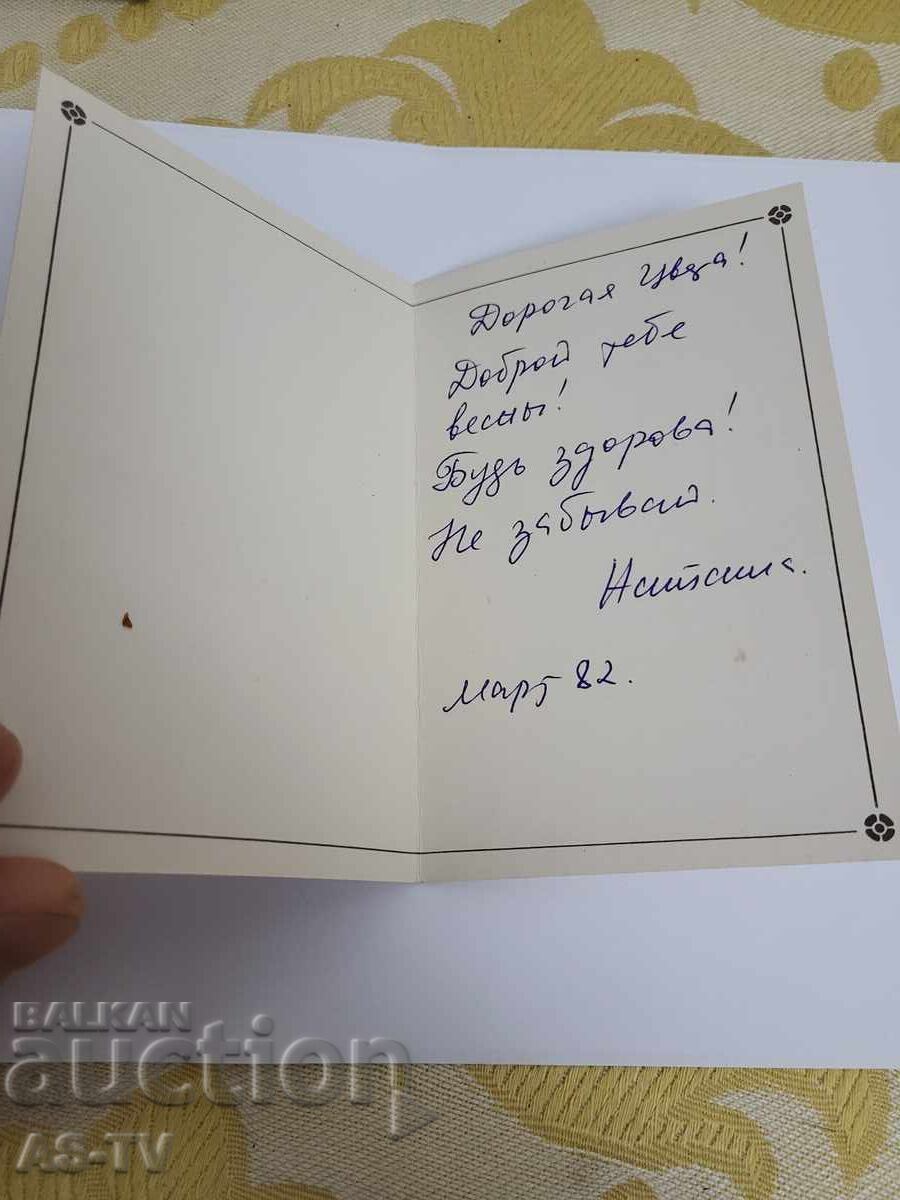 Дорогая Цвеца!
Доброй тебе
весны!
Будь здорова!
Не забывай.
Наташа.
Март 82.
BALKAN
auction
AS-TV